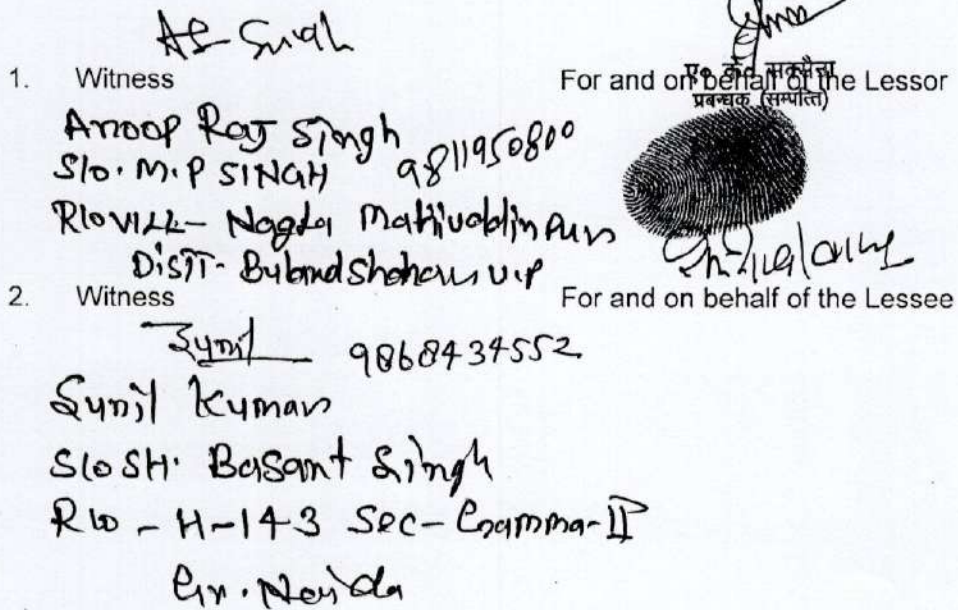 AS Singh
1. Witness
For and on behalf of the Lessor
ए० के० सक्सैना
प्रबन्धक (सम्पत्ति)
Anoop Raj Singh
S/o. M.P SINGH 9811950800
R/o VILL- Nagla Mahiuddin Pur
DISTT- Bulandshahar U.P
2. Witness
For and on behalf of the Lessee
Sunil 9868434552
Sunil Kumar
S/o SH. Basant Singh
R/o - H-143 Sec- Gamma-II
Gr. Noida